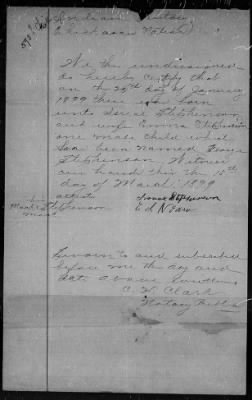 Indian Territory
Chickasaw Nation
We the undersigned
do hereby certify that
on the 25th day of January
1899 there was born
unto Isaac Stephenson
and wife Emma Stephenson
one male child what
has been named George
Stephenson. Witness
our hands this the 15th
day of March 1899
Isaac Stephenson
Stephenson
mark
Sworn to and subscribed
before me the day and
date above
C. H. Clark
Notary Public